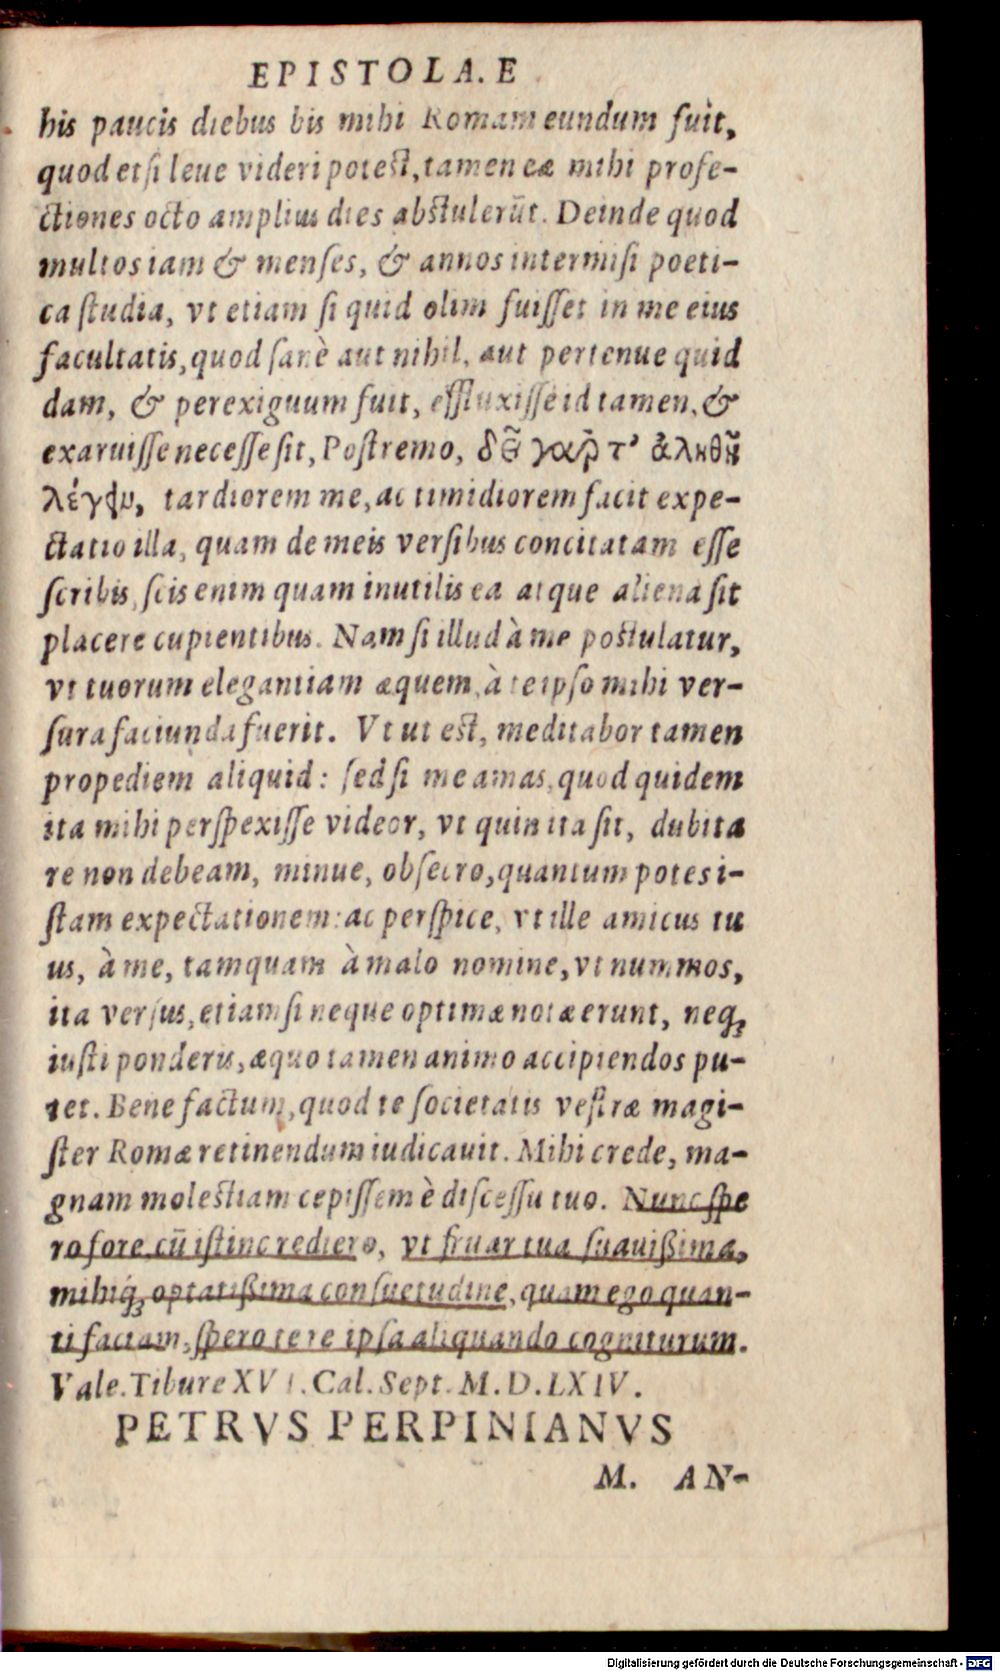 EPISTOLAE
his paucis diebus bis mihi Romam eundum fuit,
quod etsi leue videri potest, tamen eæ mihi profe-
ctiones octo amplius dies abstulerūt. Deinde quod
multos iam & menses, & annos intermisi poeti-
ca studia, vt etiam si quid olim fuisset in me eius
facultatis, quod sanè aut nihil, aut pertenue quid
dam, & perexiguum fuit, effluxisse id tamen, &
exaruisse necesse sit, Postremo, δεῖ γάρ τ' ἀληθῆ
λέγειν, tardiorem me, ac timidiorem facit expe-
ctatio illa, quam de meis versibus concitatam esse
scribis, scis enim quam inutilis ea atque aliena sit
placere cupientibus. Nam si illud à me postulatur,
vt tuorum elegantiam æquem, à te ipso mihi ver-
sura faciunda fuerit. Vt ut est, meditabor tamen
propediem aliquid: sed si me amas, quod quidem
ita mihi perspexisse videor, vt quin ita sit, dubita
re non debeam, minue, obsecro, quantum potes i-
stam expectationem: ac perspice, vt ille amicus tu
us, à me, tamquam à malo nomine, vt nummos,
ita versus, etiam si neque optimæ notæ erunt, neq;
iusti ponderis, æquo tamen animo accipiendos pu-
tet. Bene factum, quod te societatis vestræ magi-
ster Romæ retinendum iudicauit. Mihi crede, ma-
gnam molestiam cepissem è discessu tuo. Nunc spe
ro fore cū istinc rediero, vt fruar tua suauißima,
mihiq; optatißima consuetudine, quam ego quan-
ti faciam, spero te re ipsa aliquando cogniturum.
Vale. Tibure XVI. Cal. Sept. M.D.LXIV.
PETRVS PERPINIANVS
M. AN-
Digitalisierung gefördert durch die Deutsche Forschungsgemeinschaft - DFG